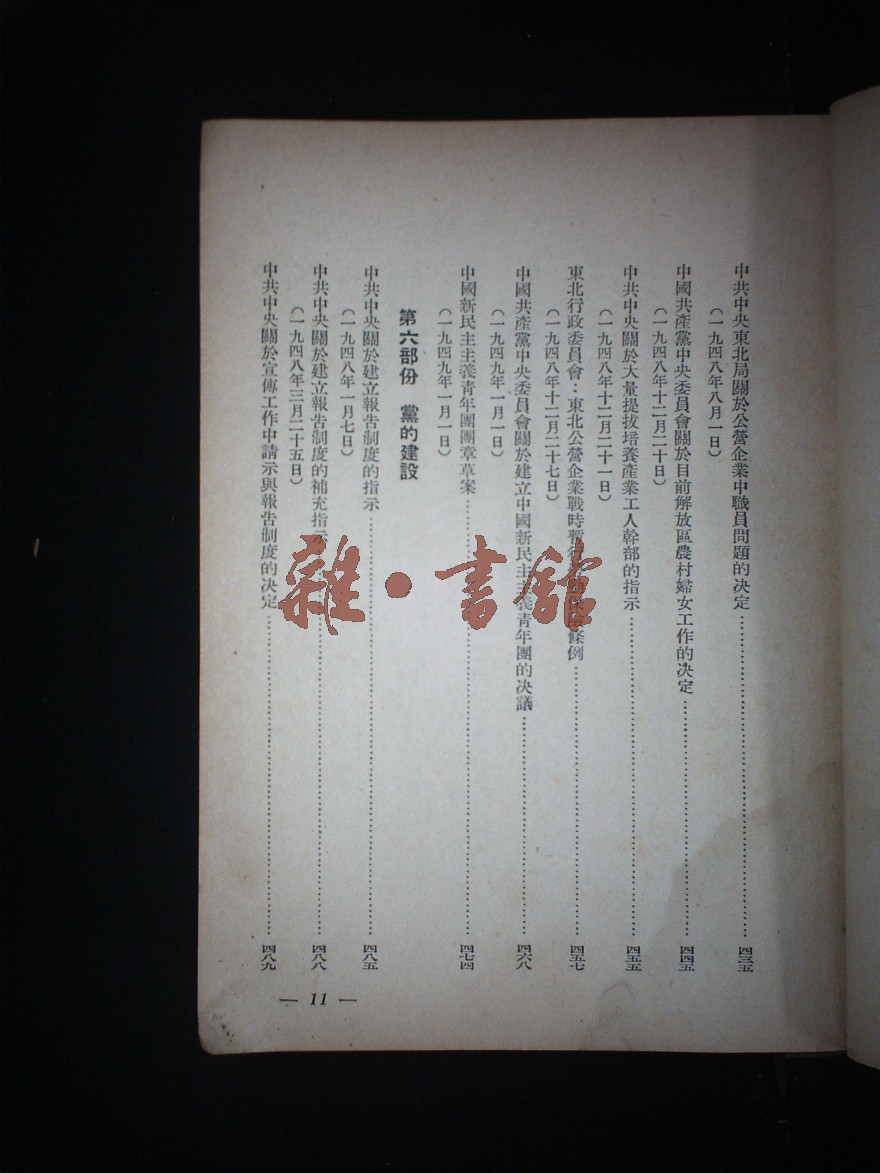 中共中央東北局關於公營企業中職員問題的決定…………四三五
(一九四八年八月一日)
中國共產黨中央委員會關於目前解放區農村婦女工作的決定…………四四五
(一九四八年十二月二十日)
中共中央關於大量提拔培養產業工人幹部的指示…………四五五
(一九四八年十二月二十一日)
東北行政委員會:東北公營企業戰時暫行 條例…………四五七
(一九四八年十二月二十七日)
中國共產黨中央委員會關於建立中國新民主主義青年團的決議…………四六八
(一九四九年一月一日)
中國新民主主義青年團團章草案…………四七四
(一九四九年一月一日)
第六部份 黨的建設
中共中央關於建立報告制度的指示…………四八五
(一九四八年一月七日)
中共中央關於建立報告制度的補充指示…………四八八
(一九四八年三月二十五日)
中共中央關於宣傳工作中請示與報告制度的決定…………四八九
— 11 —
雜·書館